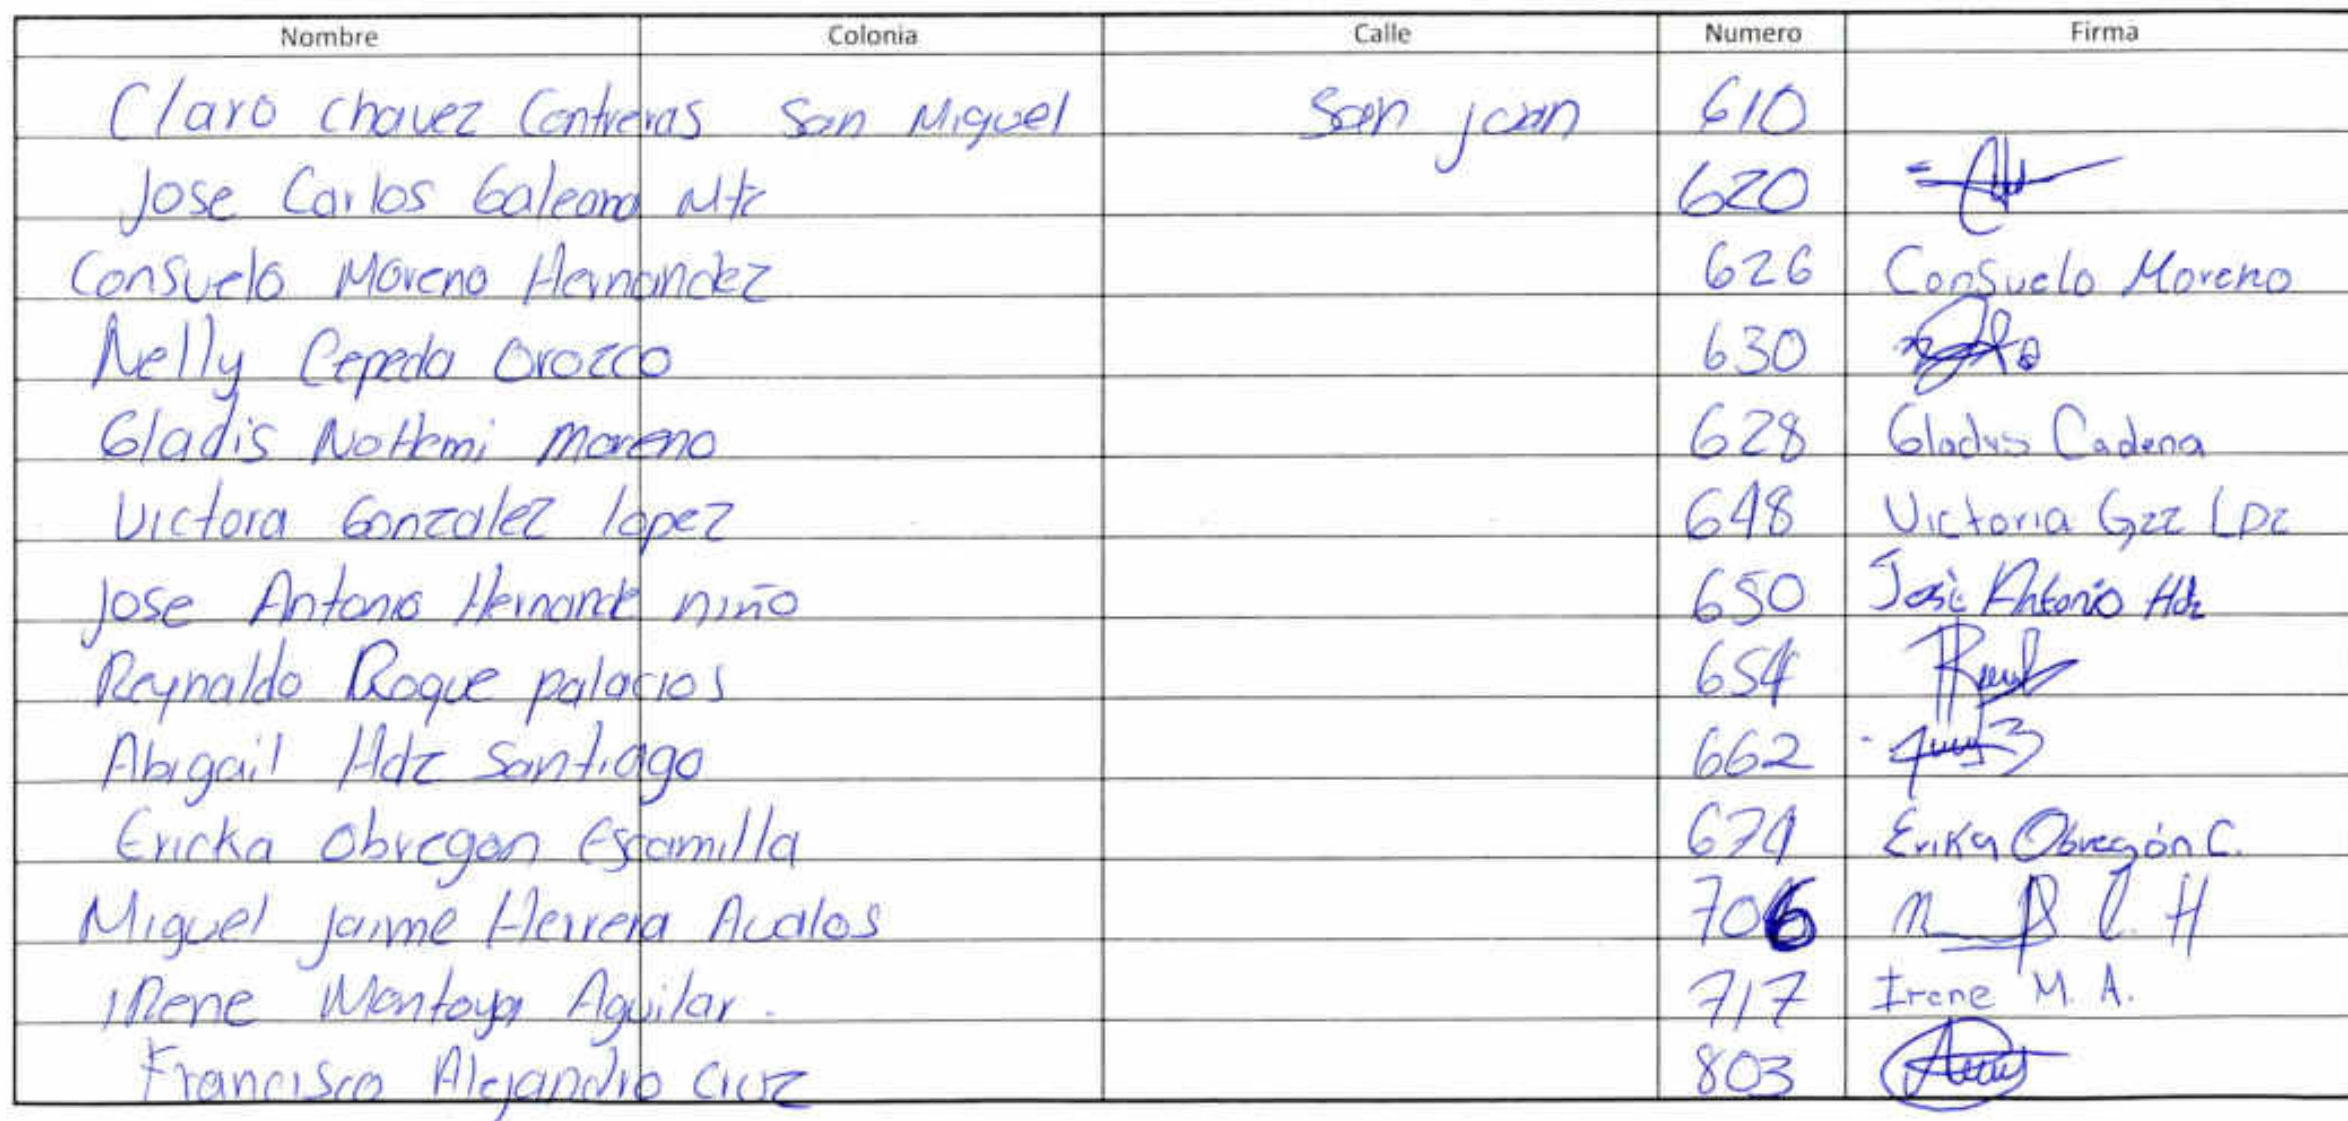 Nombre Colonia Calle Numero Firma
Claro Chavez Contreras San Miguel San juan 610
Jose Carlos Galeana Mtz 620
Consuelo Moreno Hernandez 626 Consuelo Moreno
Nelly Cepeda Orozco 630
Gladis Nohemi moreno 628 Gladys Cadena
Victora Gonzalez lopez 648 Victoria Gzz Lpz
Jose Antonio Hernande niño 650 José Antonio Hdz
Reynaldo Roque palacios 654
Abigail Hdz Santiago 662
Ericka Obregon Escamilla 674 Erika Obregón C.
Miguel Jaime Herrera Avalos 706
IRene Montoya Aguilar. 717 Irene M. A.
Francisco Alejandro Cruz 803